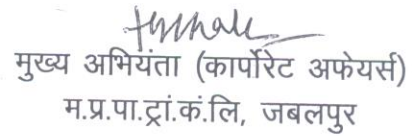 मुख्य अभियंता (कार्पोरेट अफेयर्स)
म.प्र.पा.ट्रां.कं.लि, जबलपुर